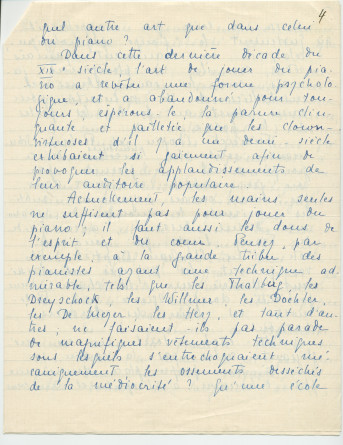 4
quel autre art que dans celui
du piano ?
Dans cette dernière décade du
XIXe siècle, l'art de jouer du pia-
no a revêtu une forme psycholo-
gique, et a abandonné pour tou-
jours espérons-le la parure clin-
quante et pailletée que les clown-
virtuoses d'il y a un demi-siècle
exhibaient si gaiement afin de
provoquer les applaudissements de
leur auditoire populaire.
Actuellement, les mains, seules
ne suffisent pas pour jouer du
piano ; il faut aussi les dons de
l'esprit et du cœur. Pensez, par
exemple, à la grande tribu des
pianistes ayant une technique ad-
mirable, tels que les Thalberg, les
Dreyschock, les Willmer, les Doehler,
les De Meyer, les Herz, et tant d'au-
tres ; ne faisaient-ils pas parade
de magnifiques vêtements techniques
sous lesquels s'entrechoquaient mé-
caniquement les ossements desséchés
de la médiocrité ? Qu'une école